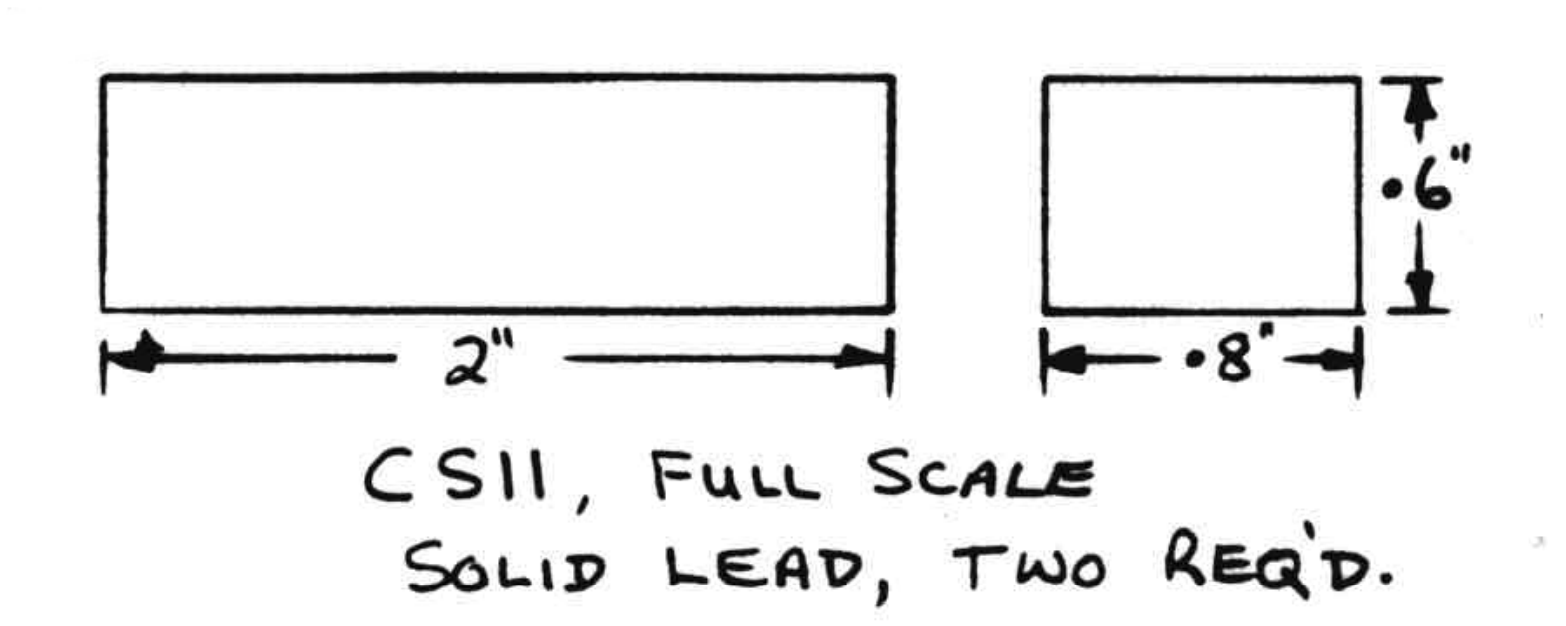 .6"
2"
.8"
CS11, FULL SCALE
SOLID LEAD, TWO REQ'D.